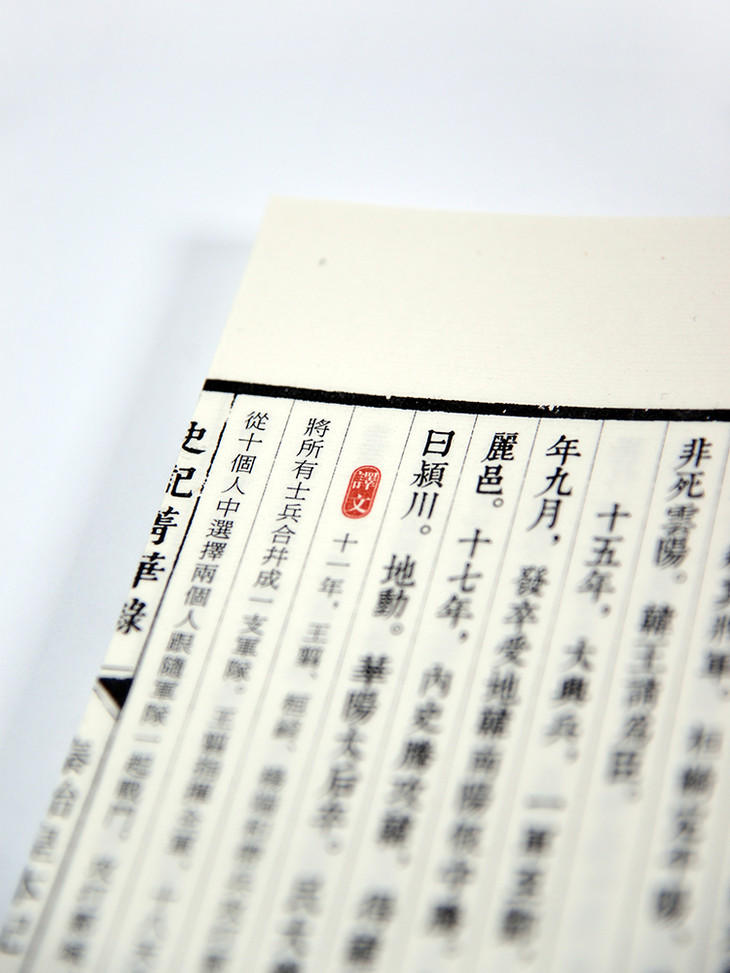 其將軍。
非死雲陽。韓王請為臣。
十五年，大興兵，一軍至鄴，
年九月，發卒受地韓南陽假守騰。
麗邑。十七年，內史騰攻韓，得韓
曰潁川。地動。華陽太后卒。民大
譯文 十一年，王翦、桓齮、
將所有士兵合并成一支軍隊。王翦指揮全軍，十八天
從十個人中選擇兩個人跟隨軍隊一起戰鬥。
史記菁華錄 秦始皇本紀